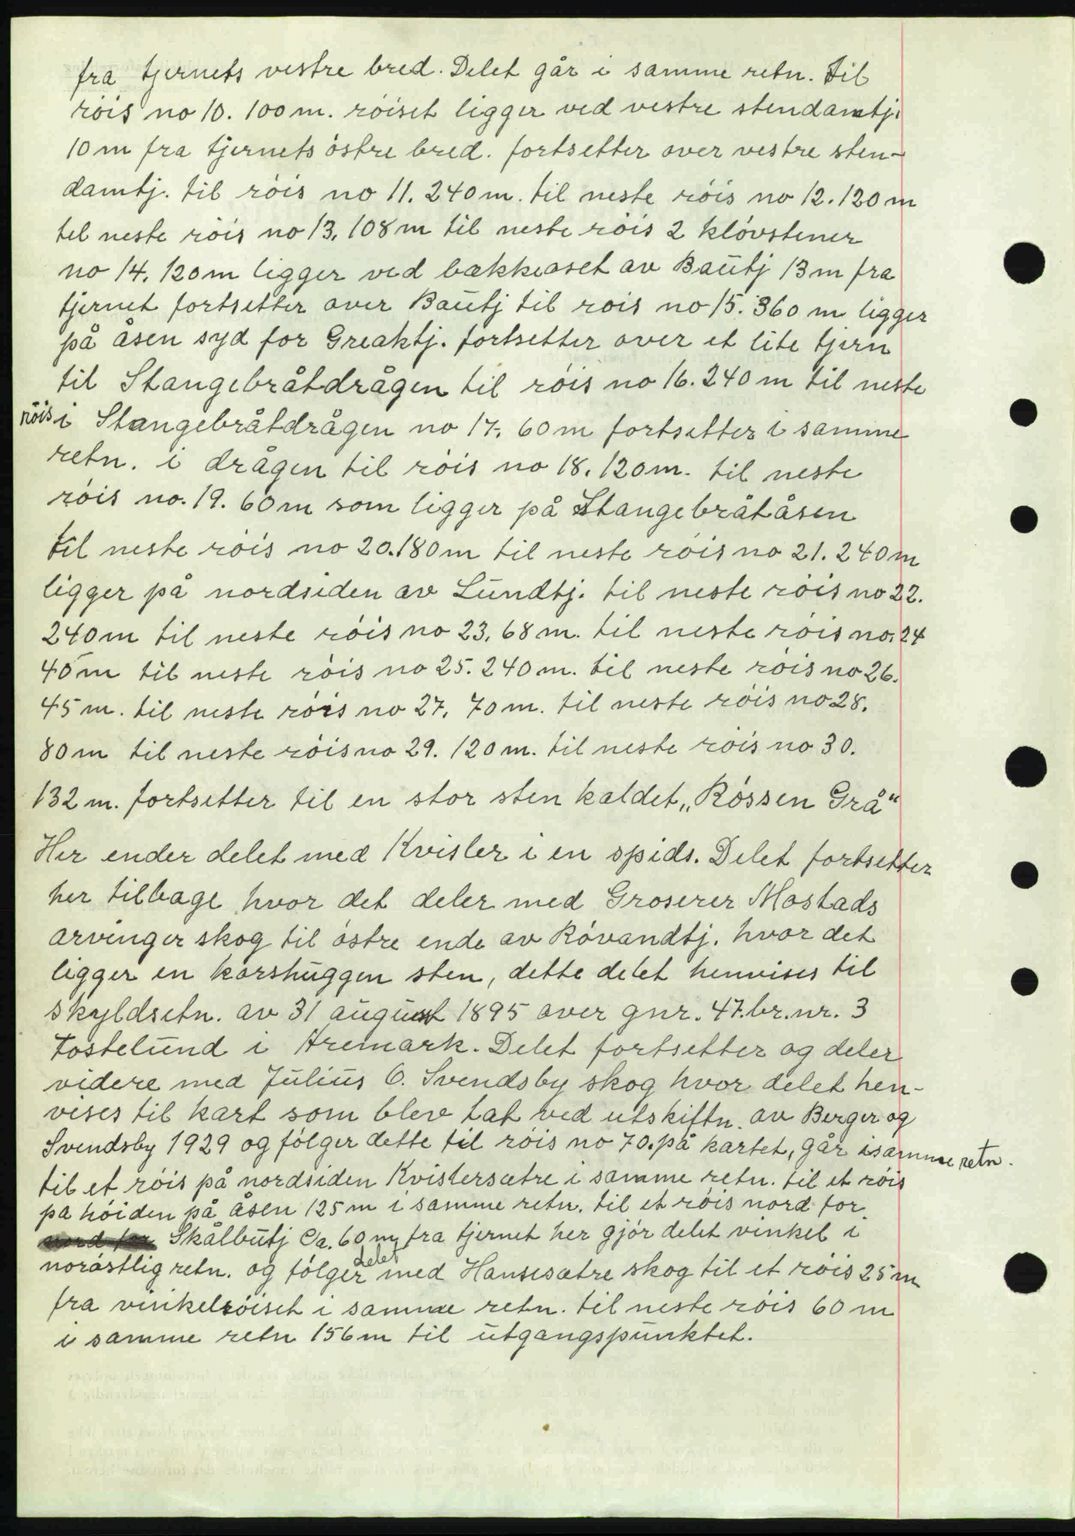 fra tjernets vestre bred. Delet går i samme retn. til
röis no 10. 100 m. röiset ligger ved vestre stendamtj.
10 m fra tjernets östre bred. fortsetter over vestre sten-
damtj. til röis no 11. 240 m. til neste röis no 12. 120 m
til neste röis no 13. 108 m til neste röis 2 klövstener
no 14. 120 m ligger ved bækkeoset av Bautj 13 m fra
tjernet fortsetter over Bautj til rois no 15. 360 m ligger
på åsen syd for Greaktj. fortsetter over et lite tjern
til Stangebråtdrågen til röis no 16. 240 m til neste
röis i Stangebråtdrågen no 17. 60 m fortsetter i samme
retn. i drågen til röis no 18. 120 m. til neste
röis no. 19. 60 m som ligger på Stangebråtåsen
til neste röis no 20. 180 m til neste röis no 21. 240 m
ligger på nordsiden av Lundtj. til neste röis no 22.
240 m til neste röis no 23. 68 m. til neste röis no. 24
40 m til neste röis no 25. 240 m. til neste röis no 26.
45 m. til neste röis no 27. 70 m. til neste röis no 28.
80 m til neste röis no 29. 120 m. til neste röis no 30.
132 m. fortsetter til en stor sten kaldet „Rössen Grå"
Her ender delet med Kvisler i en spids. Delet fortsetter
her tilbage hvor det deler med Groserer Mostads
arvinger skog til östre ende av Rövandtj. hvor det
ligger en korshuggen sten, dette delet henvises til
skyldsetn. av 31 august 1895 over gnr. 47. br. nr. 3
Tostelund i Aremark. Delet fortsetter og deler
videre med Julius O. Svendsby skog hvor delet hen-
vises til kart som blev tat ved utskiftn. av Berger og
Svendsby 1929 og fölger dette til röis no 70. på kartet, går i samme retn.
til et röis på nordsiden Kvistersætre i samme retn. til et röis
på höiden på åsen 125 m i samme retn. til et röis nord for
Skålbutj Ca. 60 m fra tjernet her gjör delet vinkel i
noröstlig retn. og fölger delet med Hansesætre skog til et röis 25 m
fra vinkelröiset i samme retn. til neste röis 60 m
i samme retn 156 m til utgangspunktet.